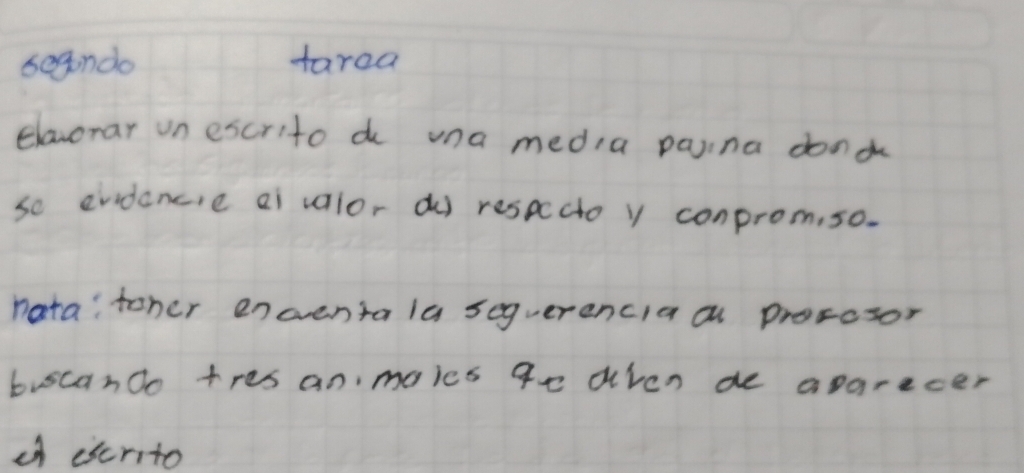 segundo tarea
Elavorar un escrito de una media pajina donde
se evidencie el valor del respecto y conpromiso.
nota: tener encuenta la sequerencia de profesor
buscando tres animales que deven de aparecer
el escrito